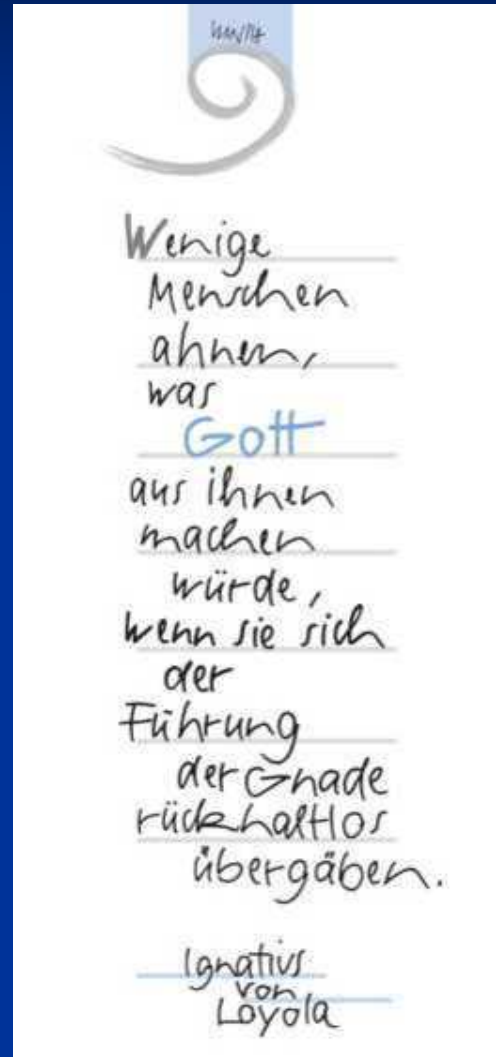 Wenige
Menschen
ahnen,
was
Gott
aus ihnen
machen
würde,
wenn sie sich
der
Führung
der Gnade
rückhaltlos
übergäben.
Ignatius
von
Loyola